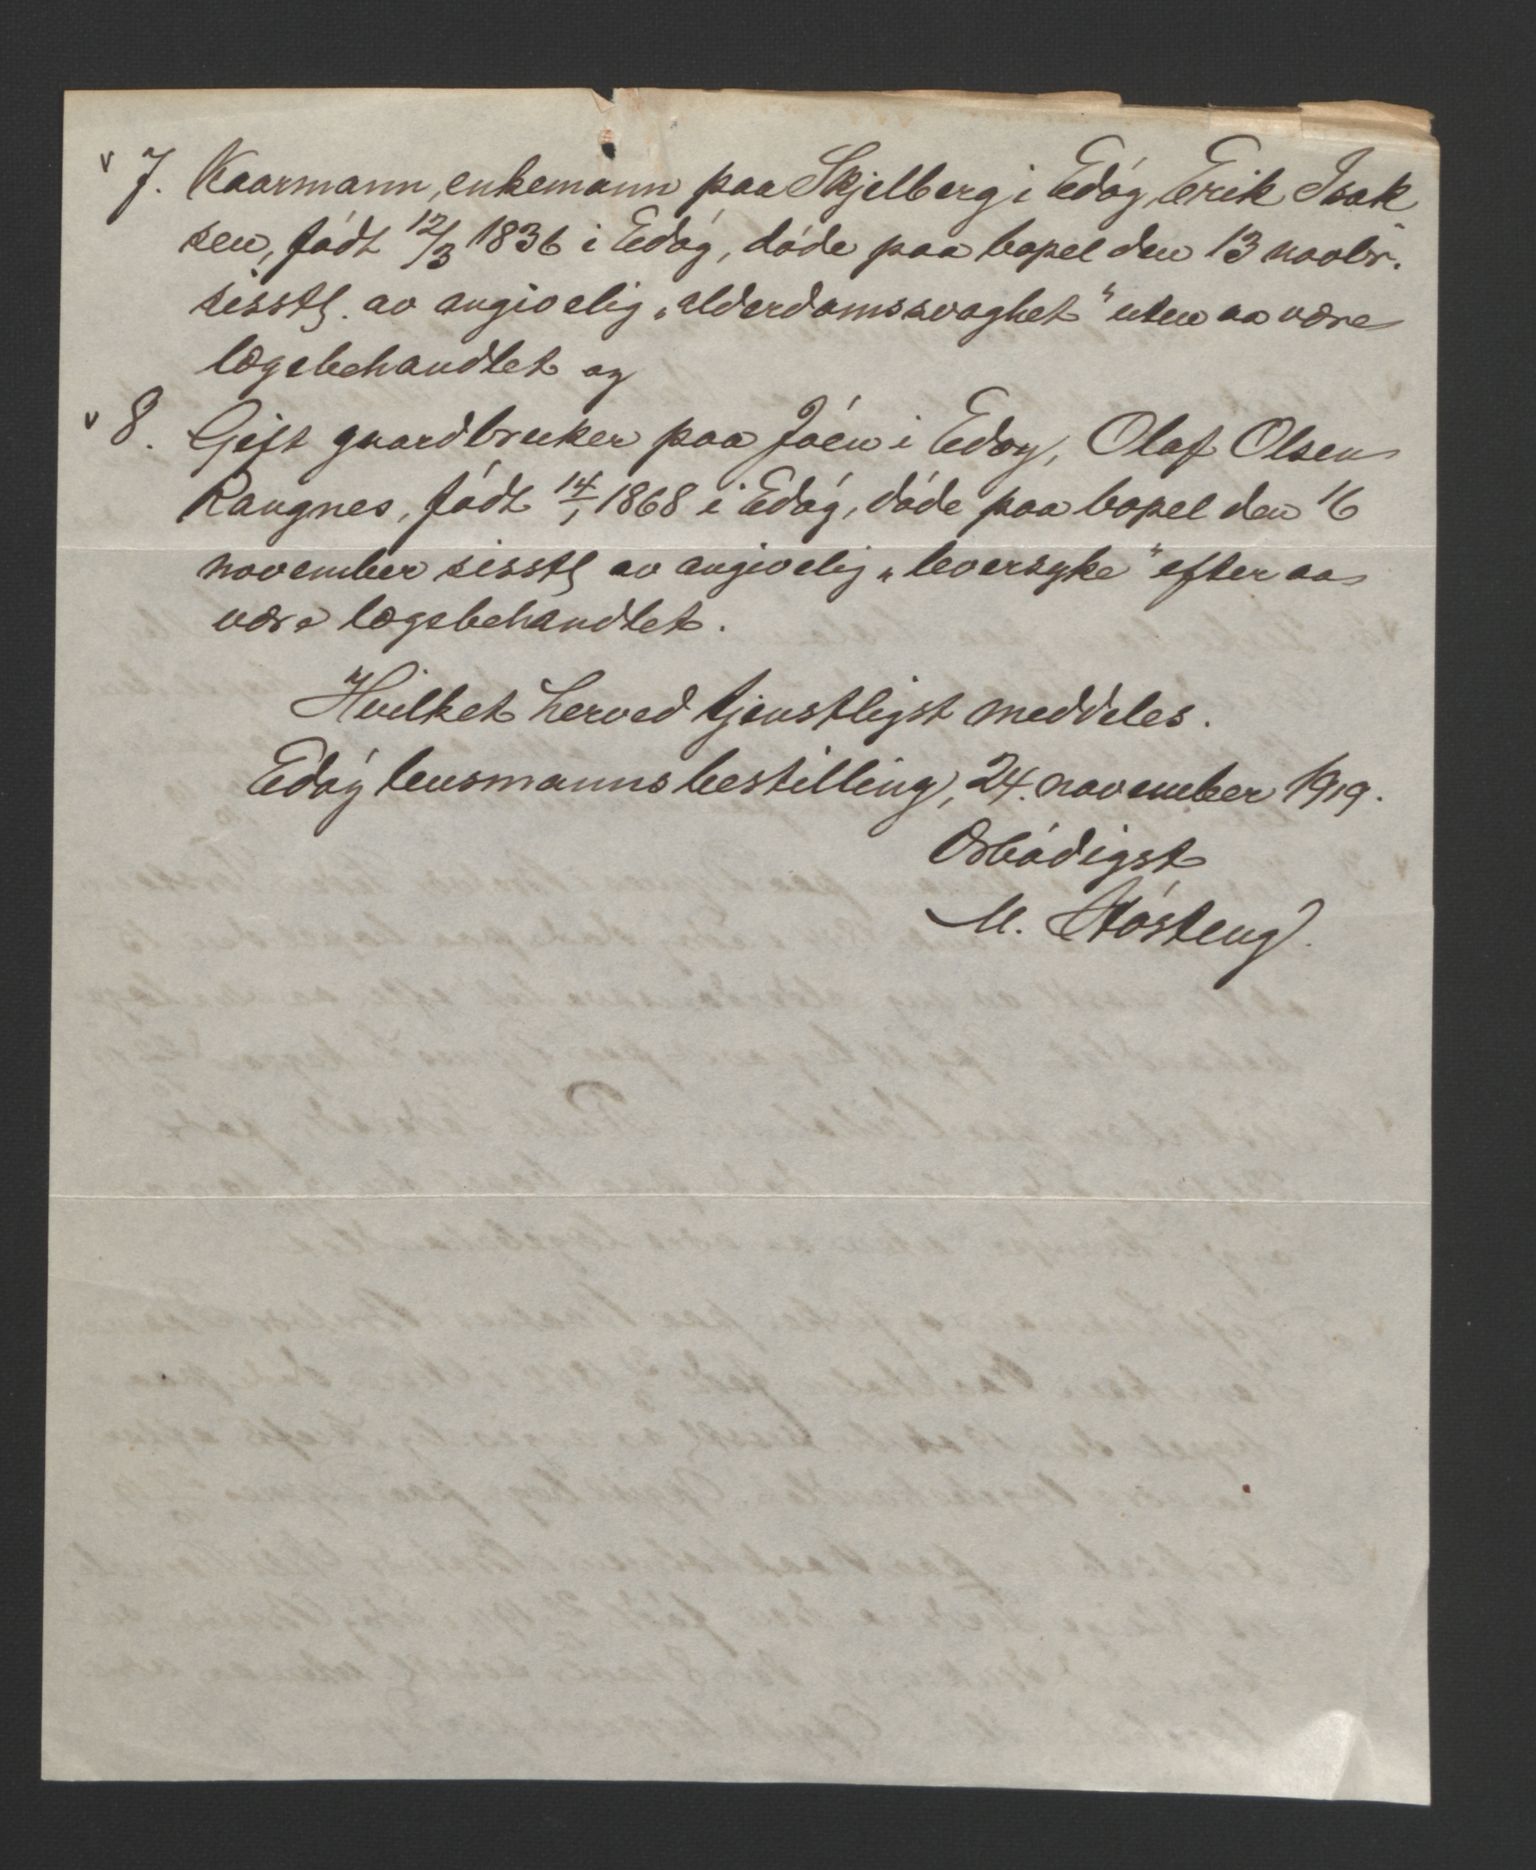 v 7. Kaarmann, enkemann paa Skjelberg i Edøy, Erik Isak
sen, født 12/3 1836 i Edøy, døde paa bopel den 13 novbr.
sisstl. av angivelig „alderdomssvaghet" uten aa være
lægebehandlet og
v 8. Gift gaardbruker paa Joen i Edøy, Olaf Olsen
Rangnes, født 14/1 1868 i Edøy, døde paa bopel den 16
november sisstl av angivelig „leversyke" efter aa
være lægebehandlet.
Hvilket herved tjenstligst meddeles.
Edøy lensmannsbestilling, 24. november 1919.
Ærbødigst
M. Støsteng.